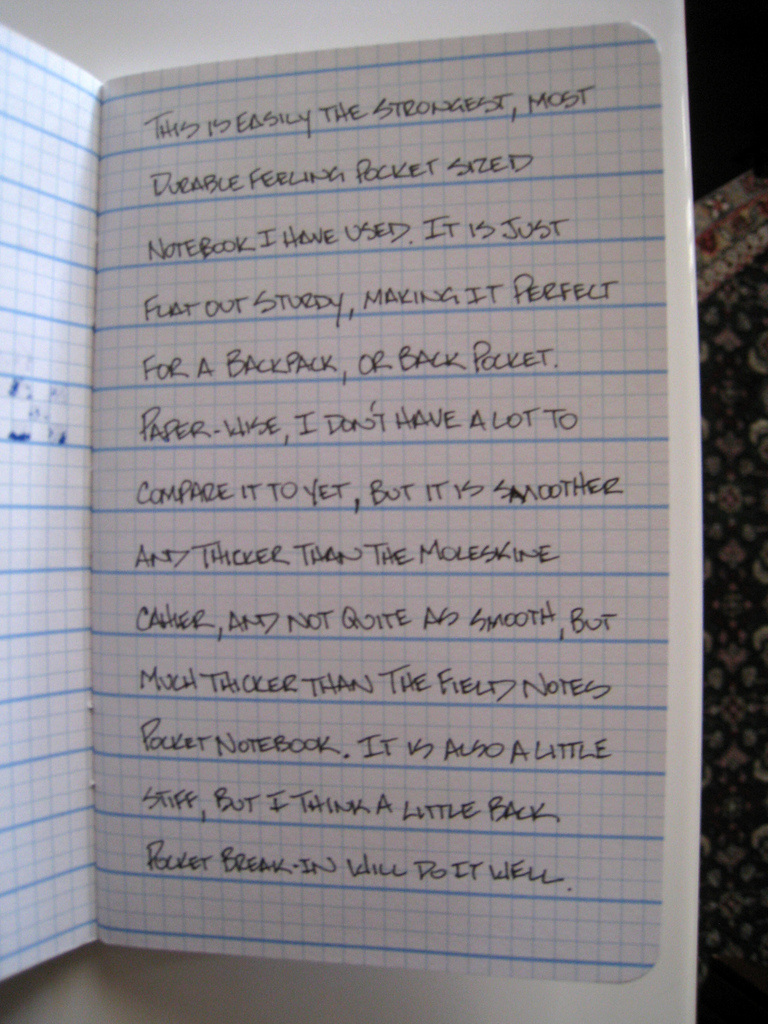 THIS IS EASILY THE STRONGEST, MOST
DURABLE FEELING POCKET SIZED
NOTEBOOK I HAVE USED. IT IS JUST
FLAT OUT STURDY, MAKING IT PERFECT
FOR A BACKPACK, OR BACK POCKET.
PAPER-WISE, I DON'T HAVE A LOT TO
COMPARE IT TO YET, BUT IT IS SMOOTHER
AND THICKER THAN THE MOLESKINE
CAHIER, AND NOT QUITE AS SMOOTH, BUT
MUCH THICKER THAN THE FIELD NOTES
POCKET NOTEBOOK. IT IS ALSO A LITTLE
STIFF, BUT I THINK A LITTLE BACK
POCKET BREAK-IN WILL DO IT WELL.